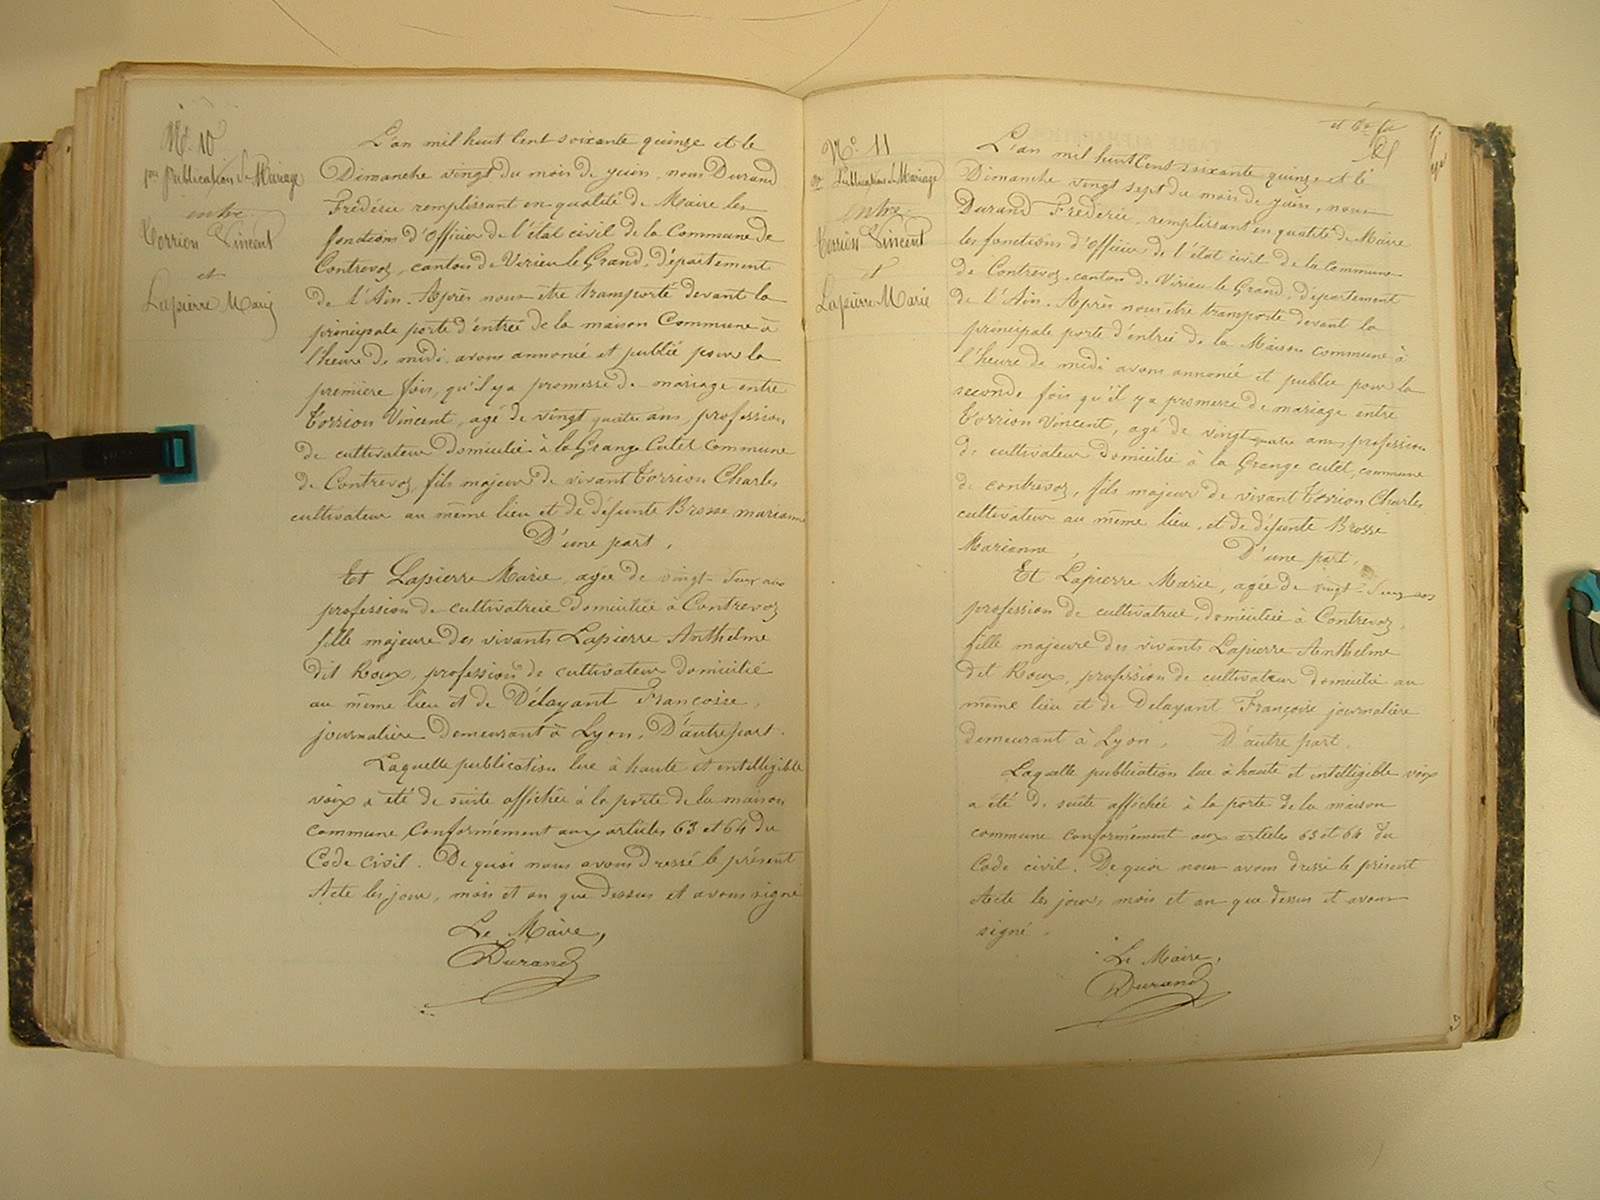 N° 10
1ère Publication de Mariage
entre
Torrion Vincent
et
Lapierre Marie
L'an mil huit Cent soixante quinze et le
Dimanche vingt du mois de juin, nous Durand
Frédéric remplissant en qualité de Maire les
fonctions d'Officier de l'état civil de la Commune de
Contrevoz, canton de Virieu le Grand, département
de l'Ain. Après nous être transporté devant la
principale porte d'entrée de la maison Commune à
l'heure de midi, avons annoncé et publié pour la
première fois, qu'il y a promesse de mariage entre
Torrion Vincent, agé de vingt quatre ans, profession
de cultivateur domicilié à la Grange Cutet Commune
de Contrevoz, fils majeur de vivant Torrion Charles
cultivateur au même lieu et de défunte Brosse marianne
D'une part,
Et Lapierre Marie, agée de vingt-deux ans
profession de cultivatrice domiciliée à Contrevoz
fille majeure des vivants Lapierre Anthelme
dit Roux, profession de cultivateur domicilié
au même lieu et de Délayant Françoise,
journalière demeurant à Lyon, D'autre part.
Laquelle publication lue à haute et intelligible
voix a été de suite affichée à la porte de la maison
commune, conformément aux articles 63 et 64 du
Code civil. De quoi nous avons dressé le présent
Acte les jour, mois et an que dessus et avons signé
Le Maire,
Durand
N° 11
2e Publication de Mariage
entre
Torrion Vincent
et
Lapierre Marie
L'an mil huit Cent soixante quinze et le
Dimanche vingt sept du mois de juin, nous
Durand Frédéric, remplissant en qualité de Maire
les fonctions d'Officier de l'état civil de la Commune
de Contrevoz, canton de Virieu le Grand, département
de l'Ain. Après nous être transporté devant la
principale porte d'entrée de la Maison commune à
l'heure de midi avons annoncé et publié pour la
seconde fois qu'il y a promesse de mariage entre
Torrion Vincent, agé de vingt quatre ans, profession
de cultivateur domicilié à la Grange cutet, commune
de contrevoz, fils majeur de vivant Torrion Charles
cultivateur au même lieu, et de défunte Brosse
Marianne, D'une part,
Et Lapierre Marie, agée de vingt-deux ans
profession de cultivatrice, domiciliée à Contrevoz,
fille majeure des vivants Lapierre Anthelme
dit Roux, profession de cultivateur domicilié au
même lieu et de Delayant Françoise journalière
demeurant à Lyon, D'autre part.
Laquelle publication lue à haute et intelligible voix
a été de suite affichée à la porte de la maison
commune conformément aux articles 63 et 64 du
Code civil. De quoi nous avons dressé le présent
Acte les jour, mois et an que dessus et avons
signé.
Le Maire,
Durand